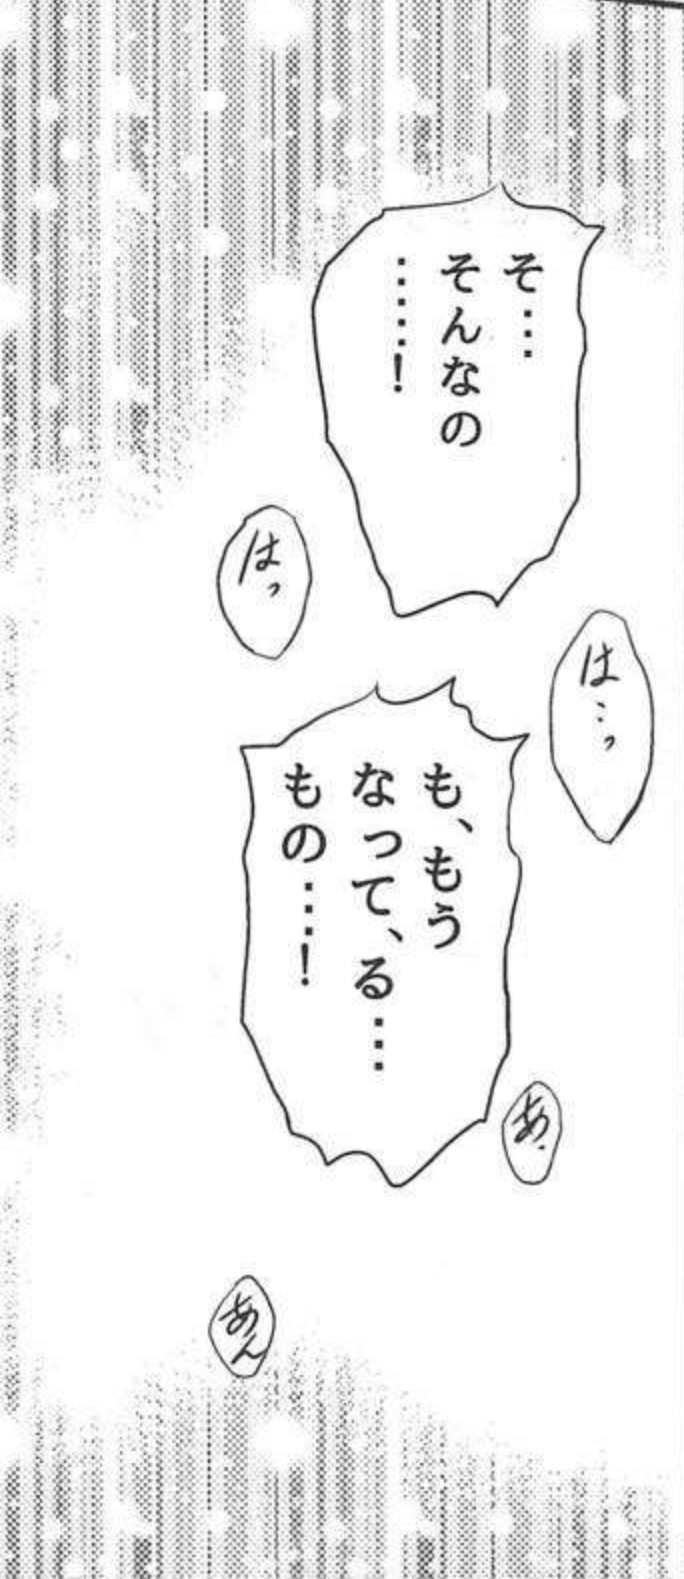 そ…
そんなの
……!
は…っ
はっ
も、もう
なって、る…
もの…!
あ、
あん